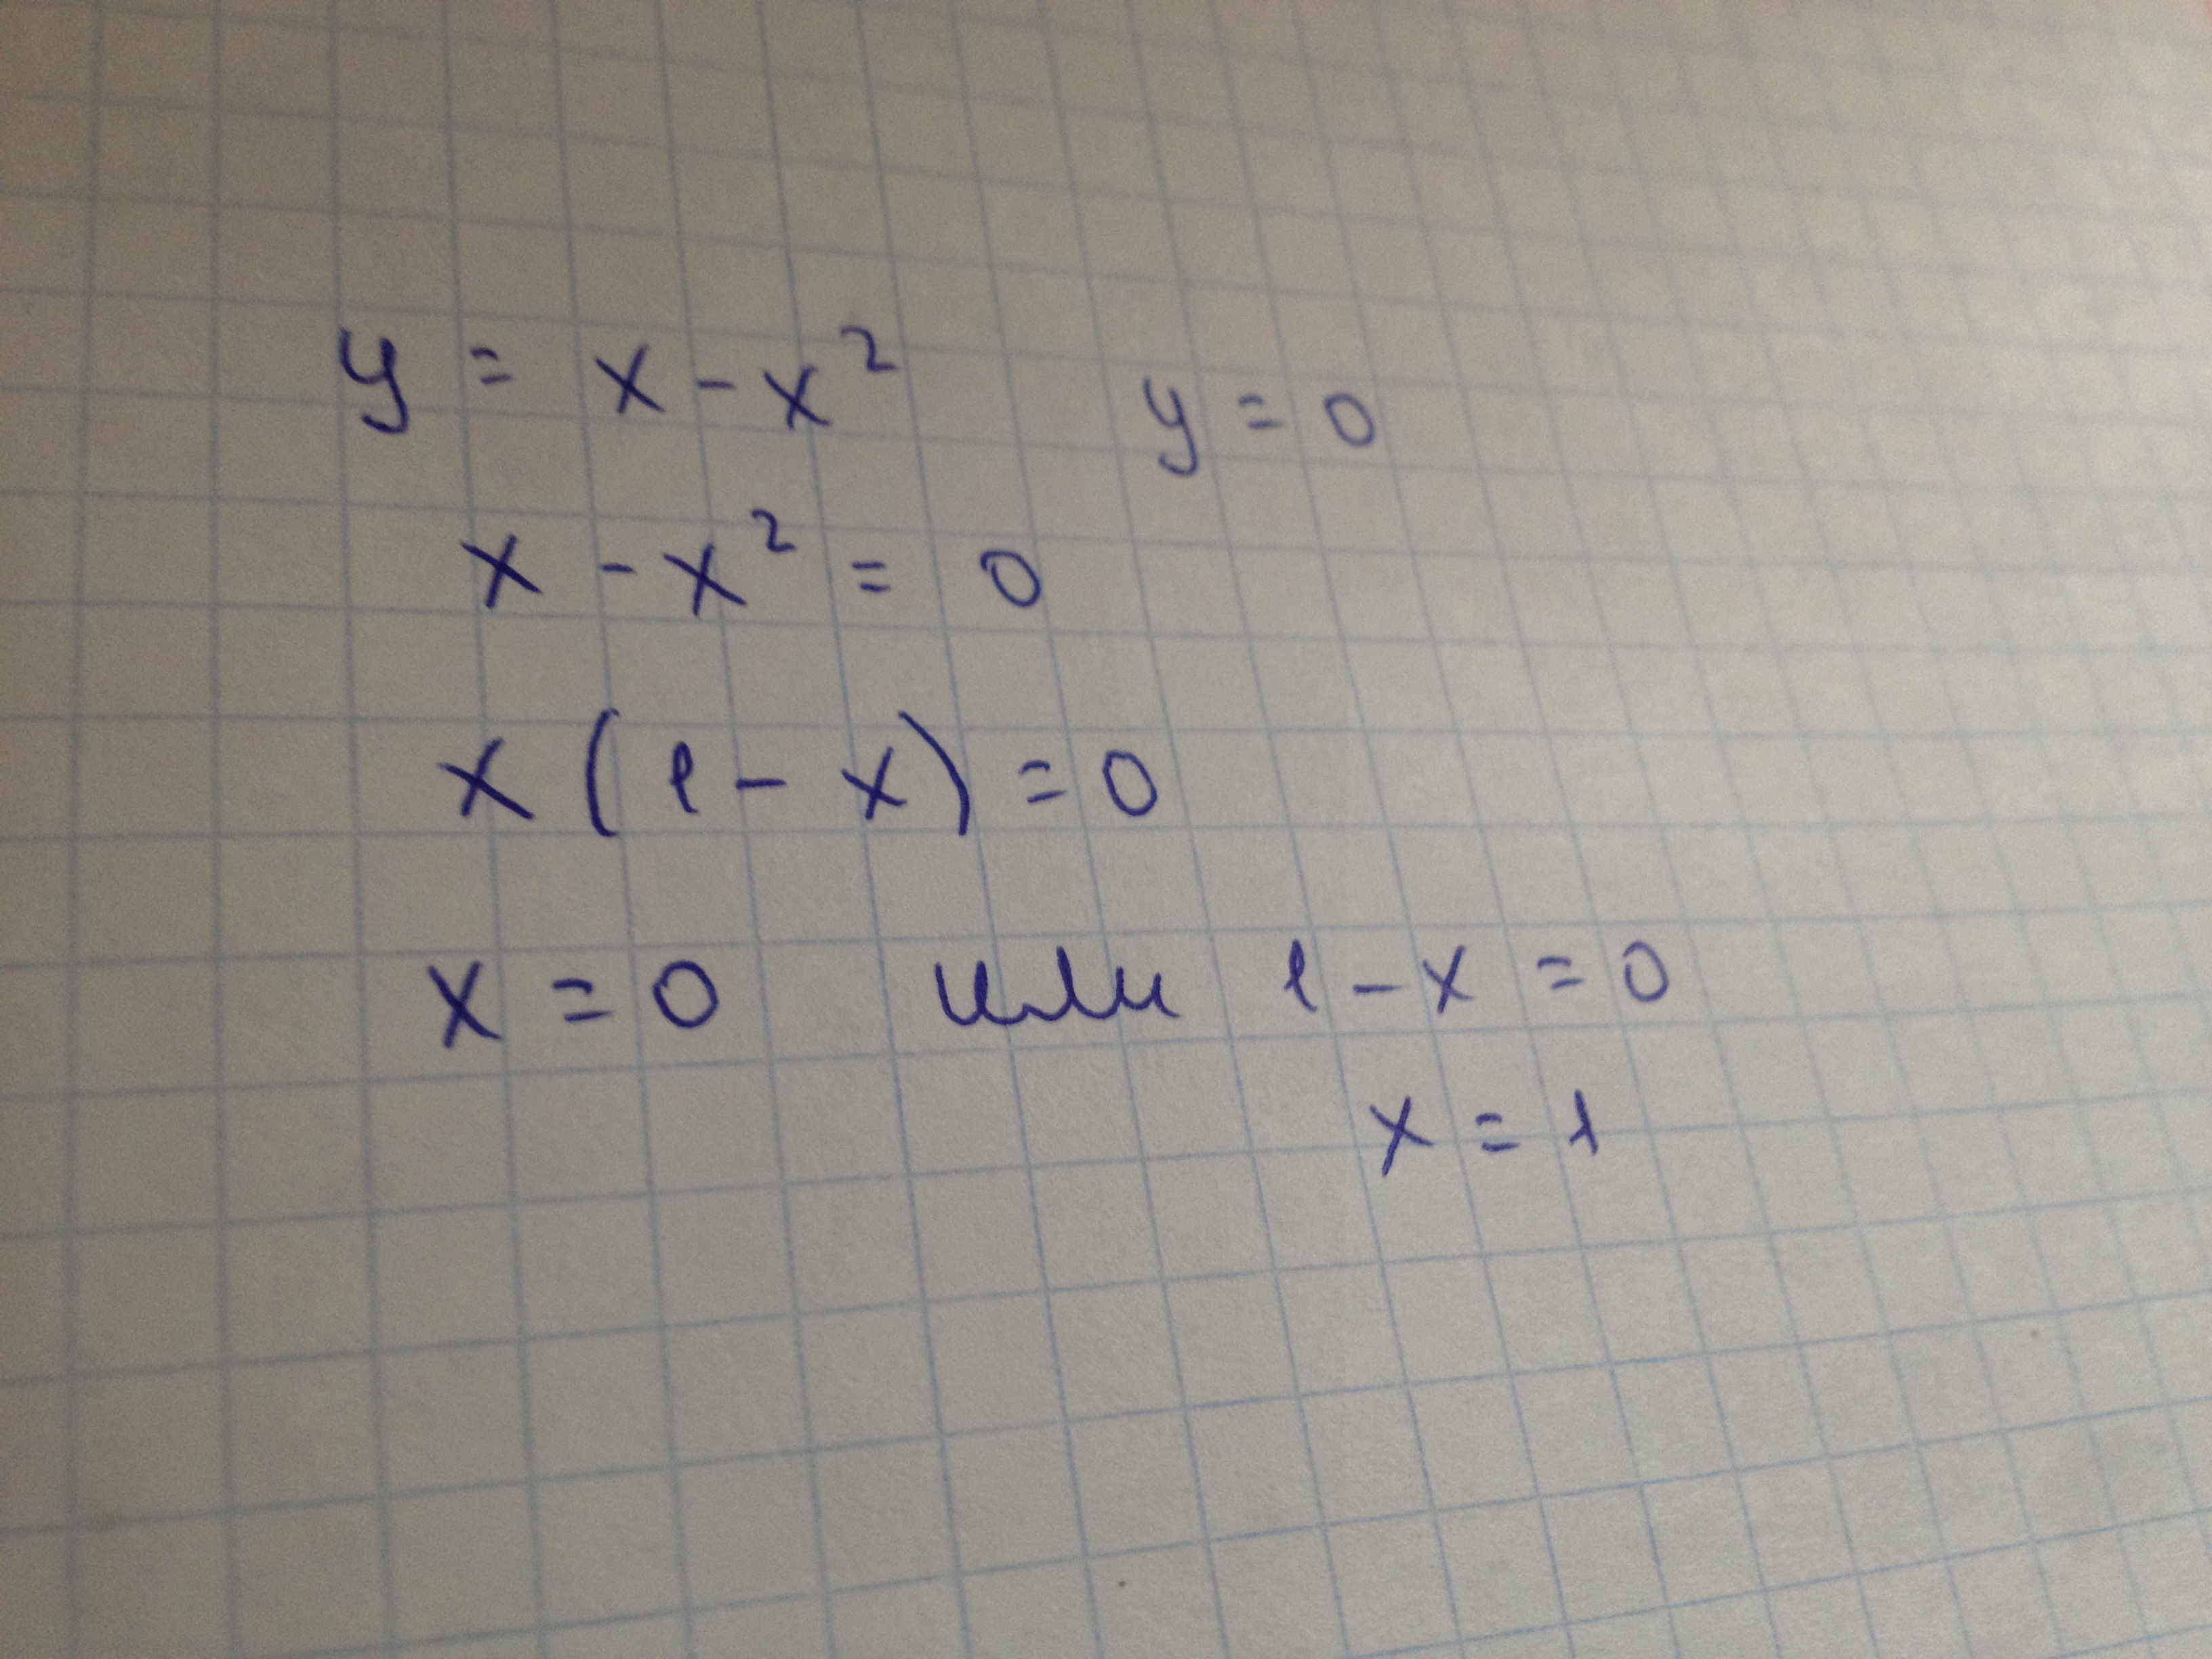 y = x - x² y = 0
x - x² = 0
x (1 - x) = 0
x = 0 или 1 - x = 0
x = 1